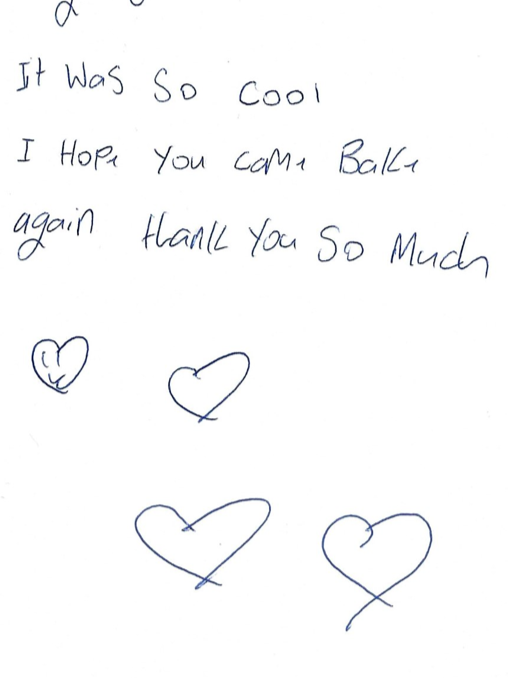 It Was So Cool
I Hope You come Bake
again thank You So Much